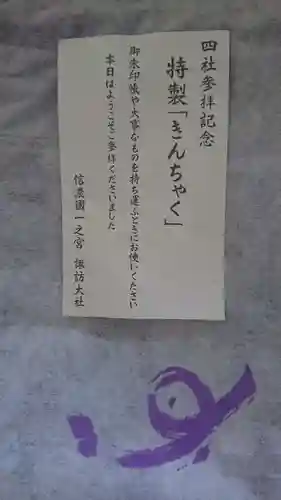 四社参拝記念
特製「きんちゃく」
御朱印帳や大事なものを持ち運ぶときにお使いください
本日はようこそご参拝くださいました
信濃國一之宮 諏訪大社